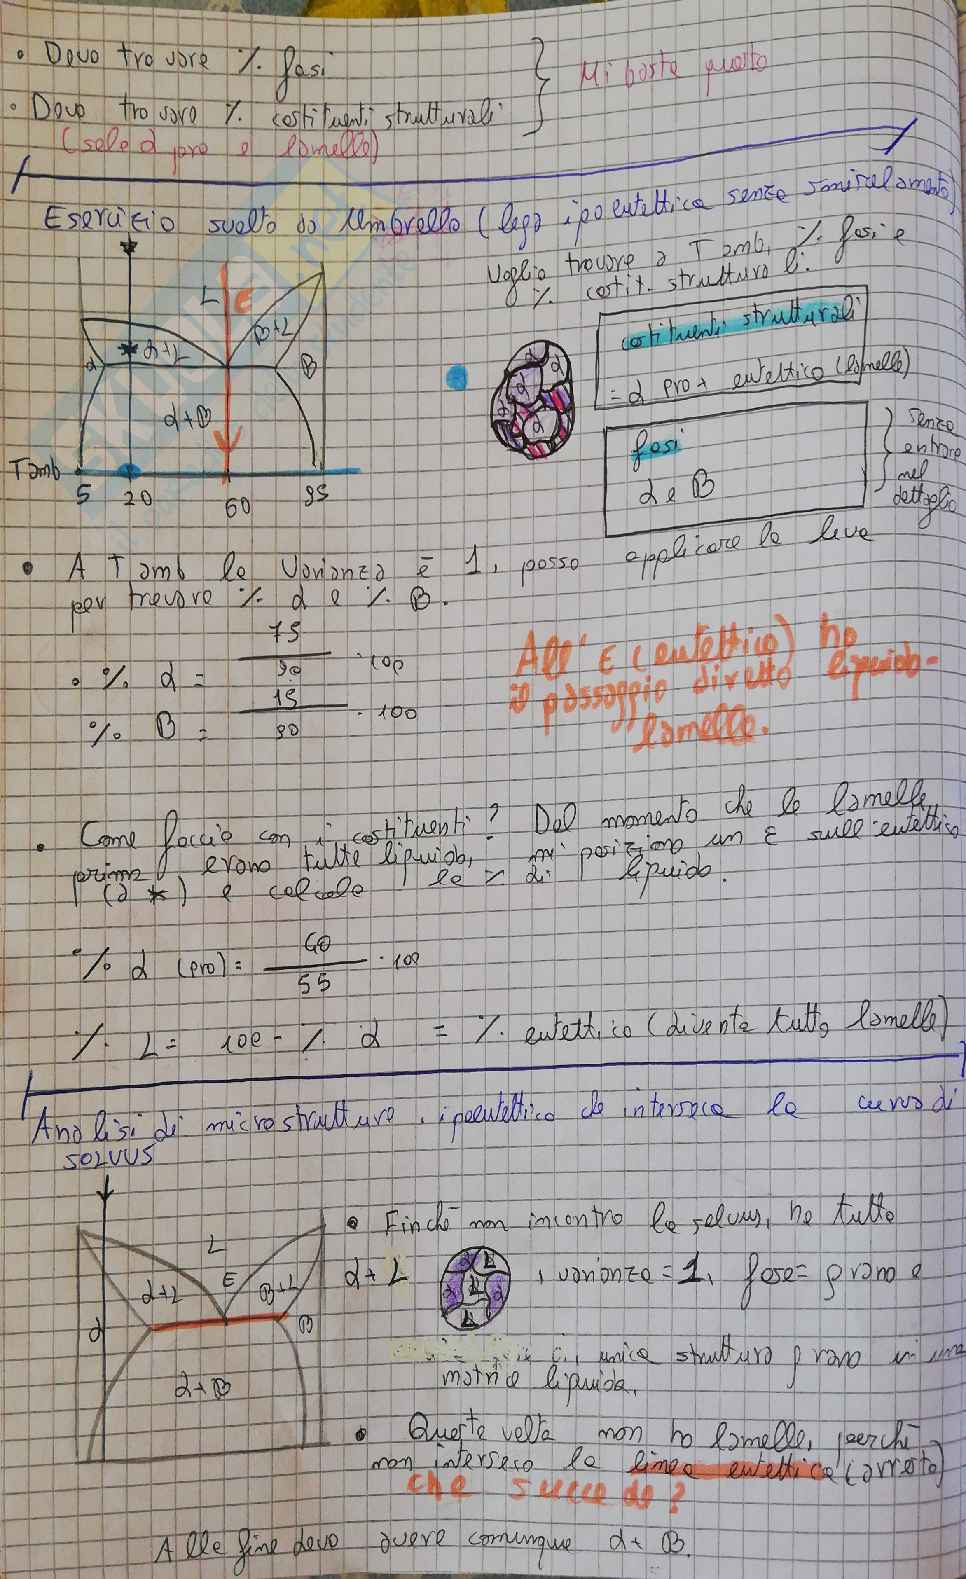 • Devo trovare % fasi
• Devo trovare % costituenti strutturali
(solo α pro e lamelle)
Mi basta questo
Esercizio svolto da Umbrello (lega ipoeutettica senza smiscelamento)
Voglio trovare a T amb, % fasi e
% costit. strutturali.
L
E
α+L
B+L
α
B
α+B
Tamb
5 20 60 95
α
α
α
α
costituenti strutturali
= α pro + eutettico (lamelle)
fasi
α e B
senza
entrare
nel
dettaglio
• A T amb la varianza è 1, posso applicare la leva
per trovare % α e % B.
• % α = 75/90 · 100
% B = 15/90 · 100
All' E (eutettico) ho
il passaggio diretto liquido-
lamelle.
• Come faccio con i costituenti? Dal momento che le lamelle
prima erano tutte liquido, mi posiziono un ε sull'eutettico
(a *) e calcolo la % di liquido.
% α (pro) = 40/55 · 100
% L = 100 - % α = % eutettico (diventa tutto lamelle)
Analisi di microstruttura, ipoeutettico che interseca la curva di
SOLVUS
L
α+L
E
B+L
α
B
α+B
• Finché non incontro la solvus, ho tutto
α+L
α
L
L
α
α
L
, varianza = 1, fase = grano e
unica struttura grano in una
matrice liquida.
• Questa volta non ho lamelle, perché
non interseco la linea eutettica (arresto)
che succede?
Alla fine devo avere comunque α + B.